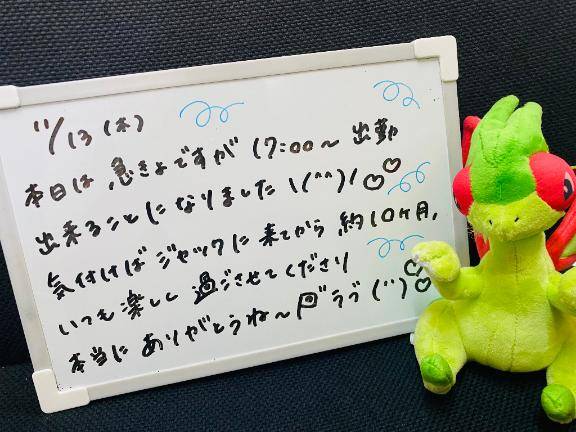 11/13 (木)
本日は 急きょですが 17:00〜 出勤
出来ることになりました \(^^)/♡♡
気付けば ジャックに 来てから 約10ヶ月,
いつも 楽しく 過ごさせてくださり
本当に ありがとうね〜 ラブ (¨)♡♡